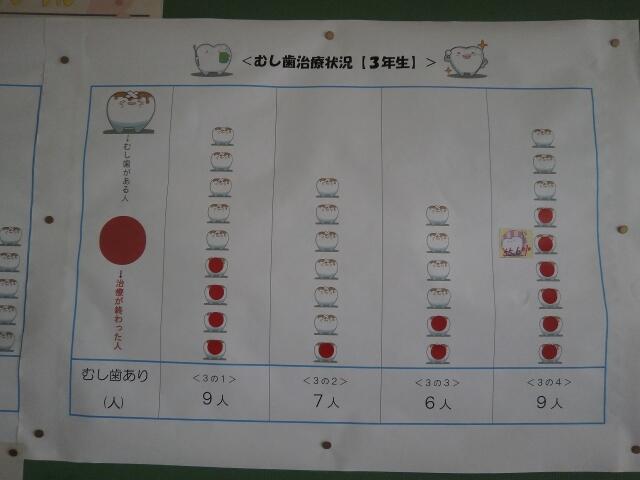 ＜むし歯治療状況【３年生】＞
↓むし歯がある人
↓治療が終わった人
むし歯あり
(人)
＜３の１＞
９人
＜３の２＞
７人
＜３の３＞
６人
＜３の４＞
９人